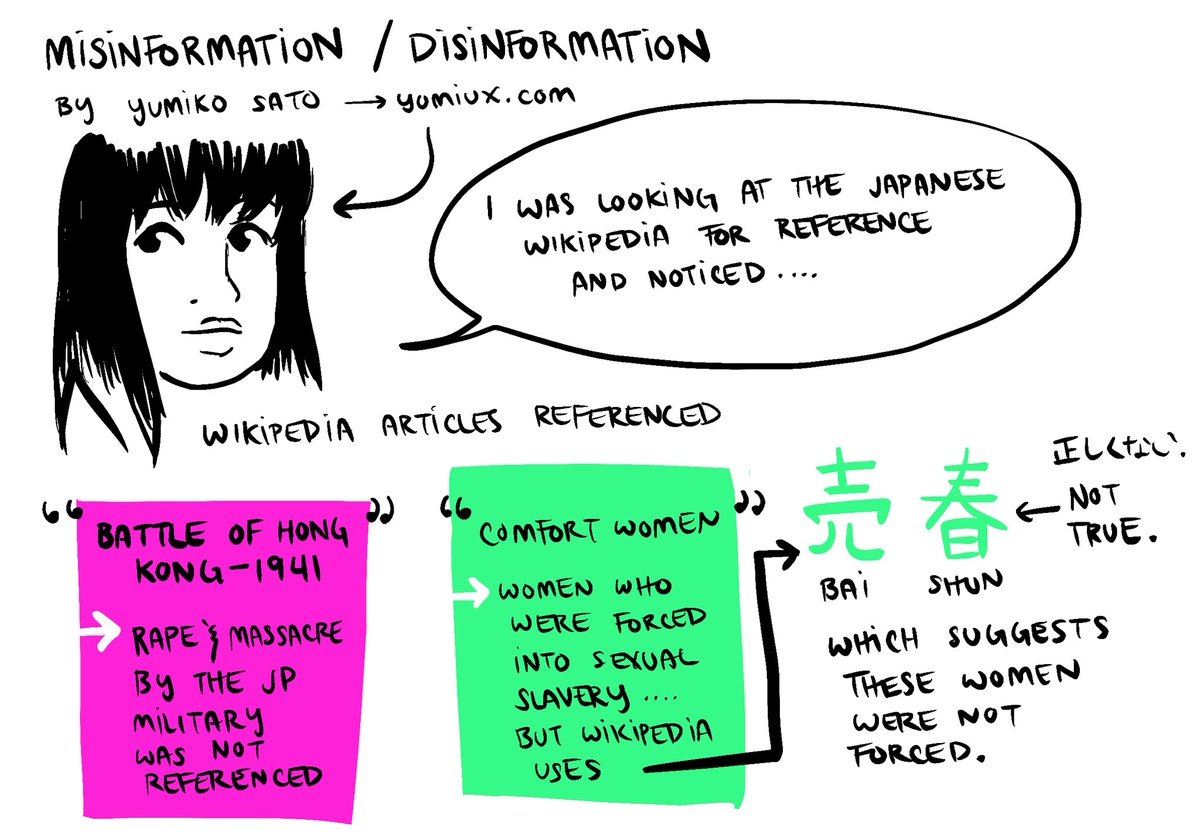 MISINFORMATION / DISINFORMATION
BY YUMIKO SATO → yumiux.com
I WAS LOOKING AT THE JAPANESE
WIKIPEDIA FOR REFERENCE
AND NOTICED....
WIKIPEDIA ARTICLES REFERENCED
“BATTLE OF HONG
KONG-1941”
→ RAPE & MASSACRE
BY THE JP
MILITARY
WAS NOT
REFERENCED
“COMFORT WOMEN”
→ WOMEN WHO
WERE FORCED
INTO SEXUAL
SLAVERY ....
BUT WIKIPEDIA
USES
売春
BAI SHUN
← 正しくない.
NOT
TRUE.
WHICH SUGGESTS
THESE WOMEN
WERE NOT
FORCED.